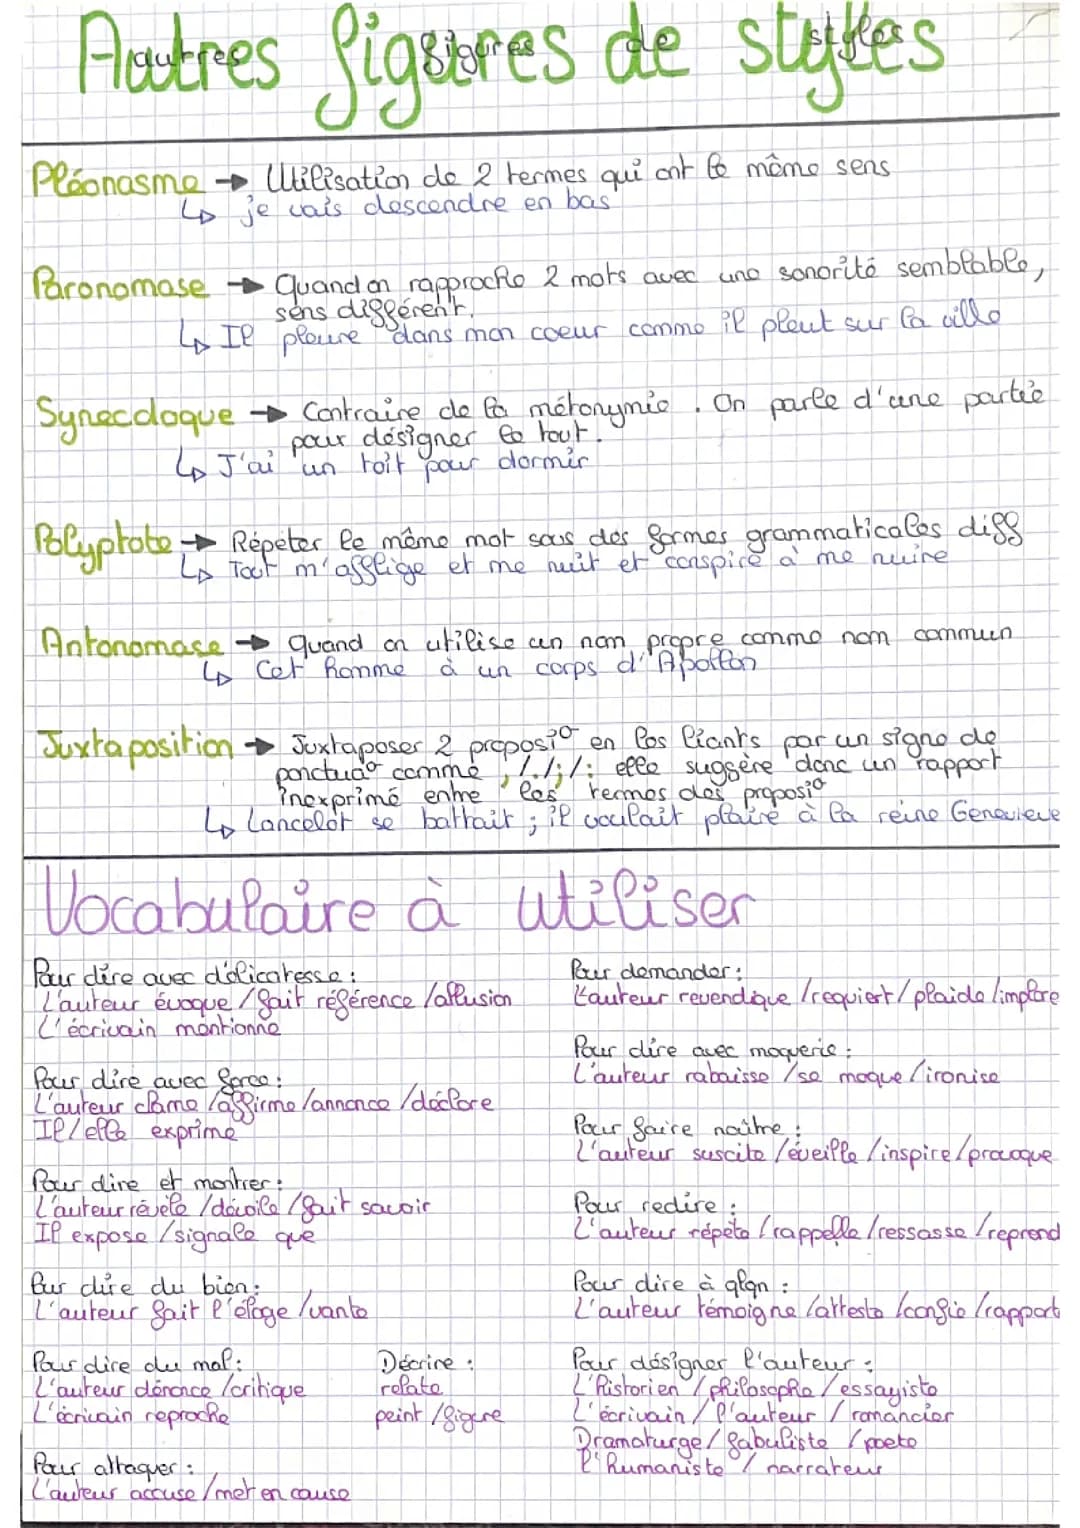 Autres figures de styles
autres figures de styles
Pléonasme → Utilisation de 2 termes qui ont le même sens
↳ je vais descendre en bas
Paronomase → Quand on rapproche 2 mots avec une sonorité semblable,
sens différent.
↳ Il pleure dans mon coeur comme il pleut sur la ville
Synecdoque → Contraire de la métonymie. On parle d'une partie
pour désigner le tout.
↳ J'ai un toit pour dormir
Polyptote → Répéter le même mot sous des formes grammaticales diff
↳ Tout m'afflige et me nuit et conspire à me nuire
Antonomase → quand on utilise un nom propre comme nom commun
↳ Cet homme à un corps d'Apollon
Juxtaposition → Juxtaposer 2 proposi° en les liants par un signe de
ponctua° comme , /./;/: elle suggère donc un rapport
inexprimé entre les termes des proposi°
↳ Lancelot se battait ; il voulait plaire à la reine Genevieve
Vocabulaire à utiliser
Pour dire avec délicatesse :
L'auteur évoque / fait référence / allusion
L'écrivain mentionne
Pour dire avec force :
L'auteur clame / affirme / annonce / déclare
Il / elle exprime
Pour dire et montrer :
L'auteur révèle / dévoile / fait savoir
Il expose / signale que
Pour dire du bien :
L'auteur fait l'éloge / vante
Pour dire du mal :
L'auteur dénonce / critique
L'écrivain reproche
Décrire :
relate
peint / figure
Pour attaquer :
L'auteur accuse / met en cause
Pour demander :
L'auteur revendique / requiert / plaide / implore
Pour dire avec moquerie :
L'auteur rabaisse / se moque / ironise
Pour faire naître :
L'auteur suscite / éveille / inspire / provoque
Pour redire :
L'auteur répète / rappelle / ressasse / reprend
Pour dire à qlqn :
L'auteur témoigne / atteste / confie / rapport
Pour désigner l'auteur :
L'historien / philosophe / essayiste
L'écrivain / l'auteur / romancier
Dramaturge / fabuliste / poete
l'humaniste / narrateur